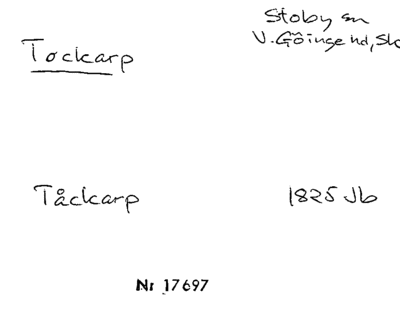 Tockarp
Stoby sn
V. Göinge hd, Sk
Tåckarp
1825 Jb
Nr 17697